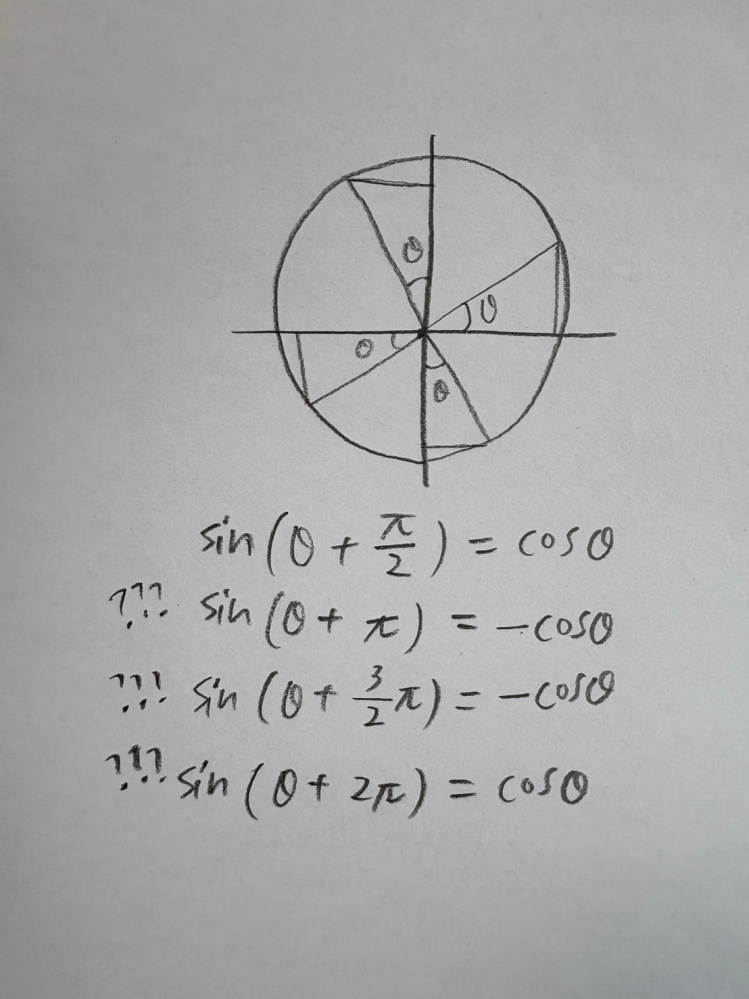 θ
θ
θ
θ
sin(θ + π/2) = cosθ
??? sin(θ + π) = -cosθ
??? sin(θ + 3/2 π) = -cosθ
??? sin(θ + 2π) = cosθ